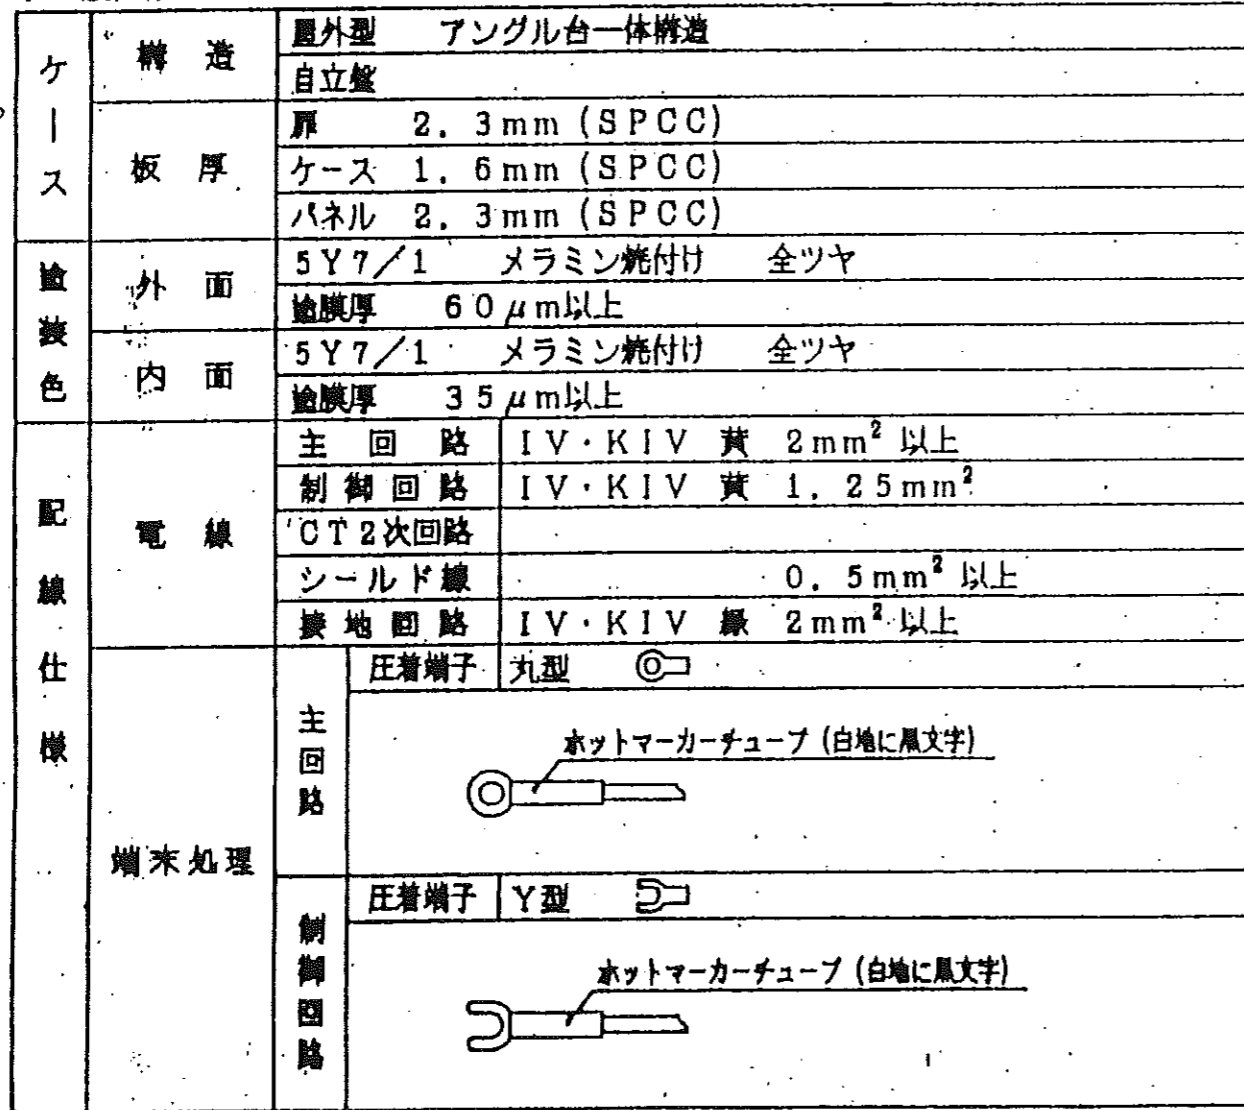 ケース
構造
屋外型 アングル台一体構造
自立盤
板厚
扉 2.3mm(SPCC)
ケース 1.6mm(SPCC)
パネル 2.3mm(SPCC)
塗装色
外面
5Y7/1 メラミン焼付け 全ツヤ
塗膜厚 60μm以上
内面
5Y7/1 メラミン焼付け 全ツヤ
塗膜厚 35μm以上
配線仕様
電線
主回路 IV・KIV 黄 2mm² 以上
制御回路 IV・KIV 黄 1.25mm²
CT2次回路
シールド線 0.5mm² 以上
接地回路 IV・KIV 緑 2mm² 以上
端末処理
主回路
圧着端子 丸型
ホットマーカーチューブ(白地に黒文字)
制御回路
圧着端子 Y型
ホットマーカーチューブ(白地に黒文字)